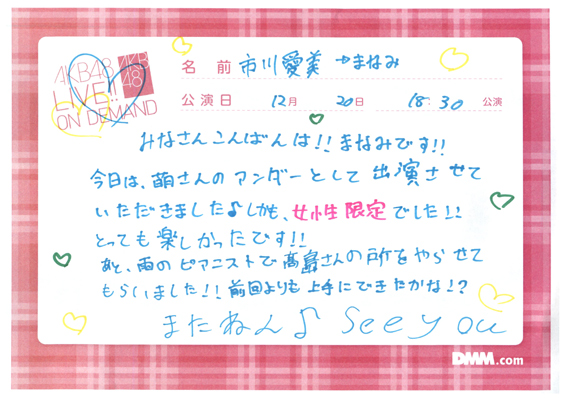 AKB48
LIVE!!
ON DEMAND
AKB
48
名 前 市川愛美 →まなみ
公演日 12月 20日 18:30 公演
みなさんこんばんは!! まなみです!!
今日は、萌さんのアンダーとして出演させて
いただきました♪しかも、女性限定でした!!
とっても楽しかったです!!
あと、雨のピアニストで高島さんの所をやらせて
もらいました!! 前回よりも上手にできたかな!?
またねん♪ See you
DMM.com